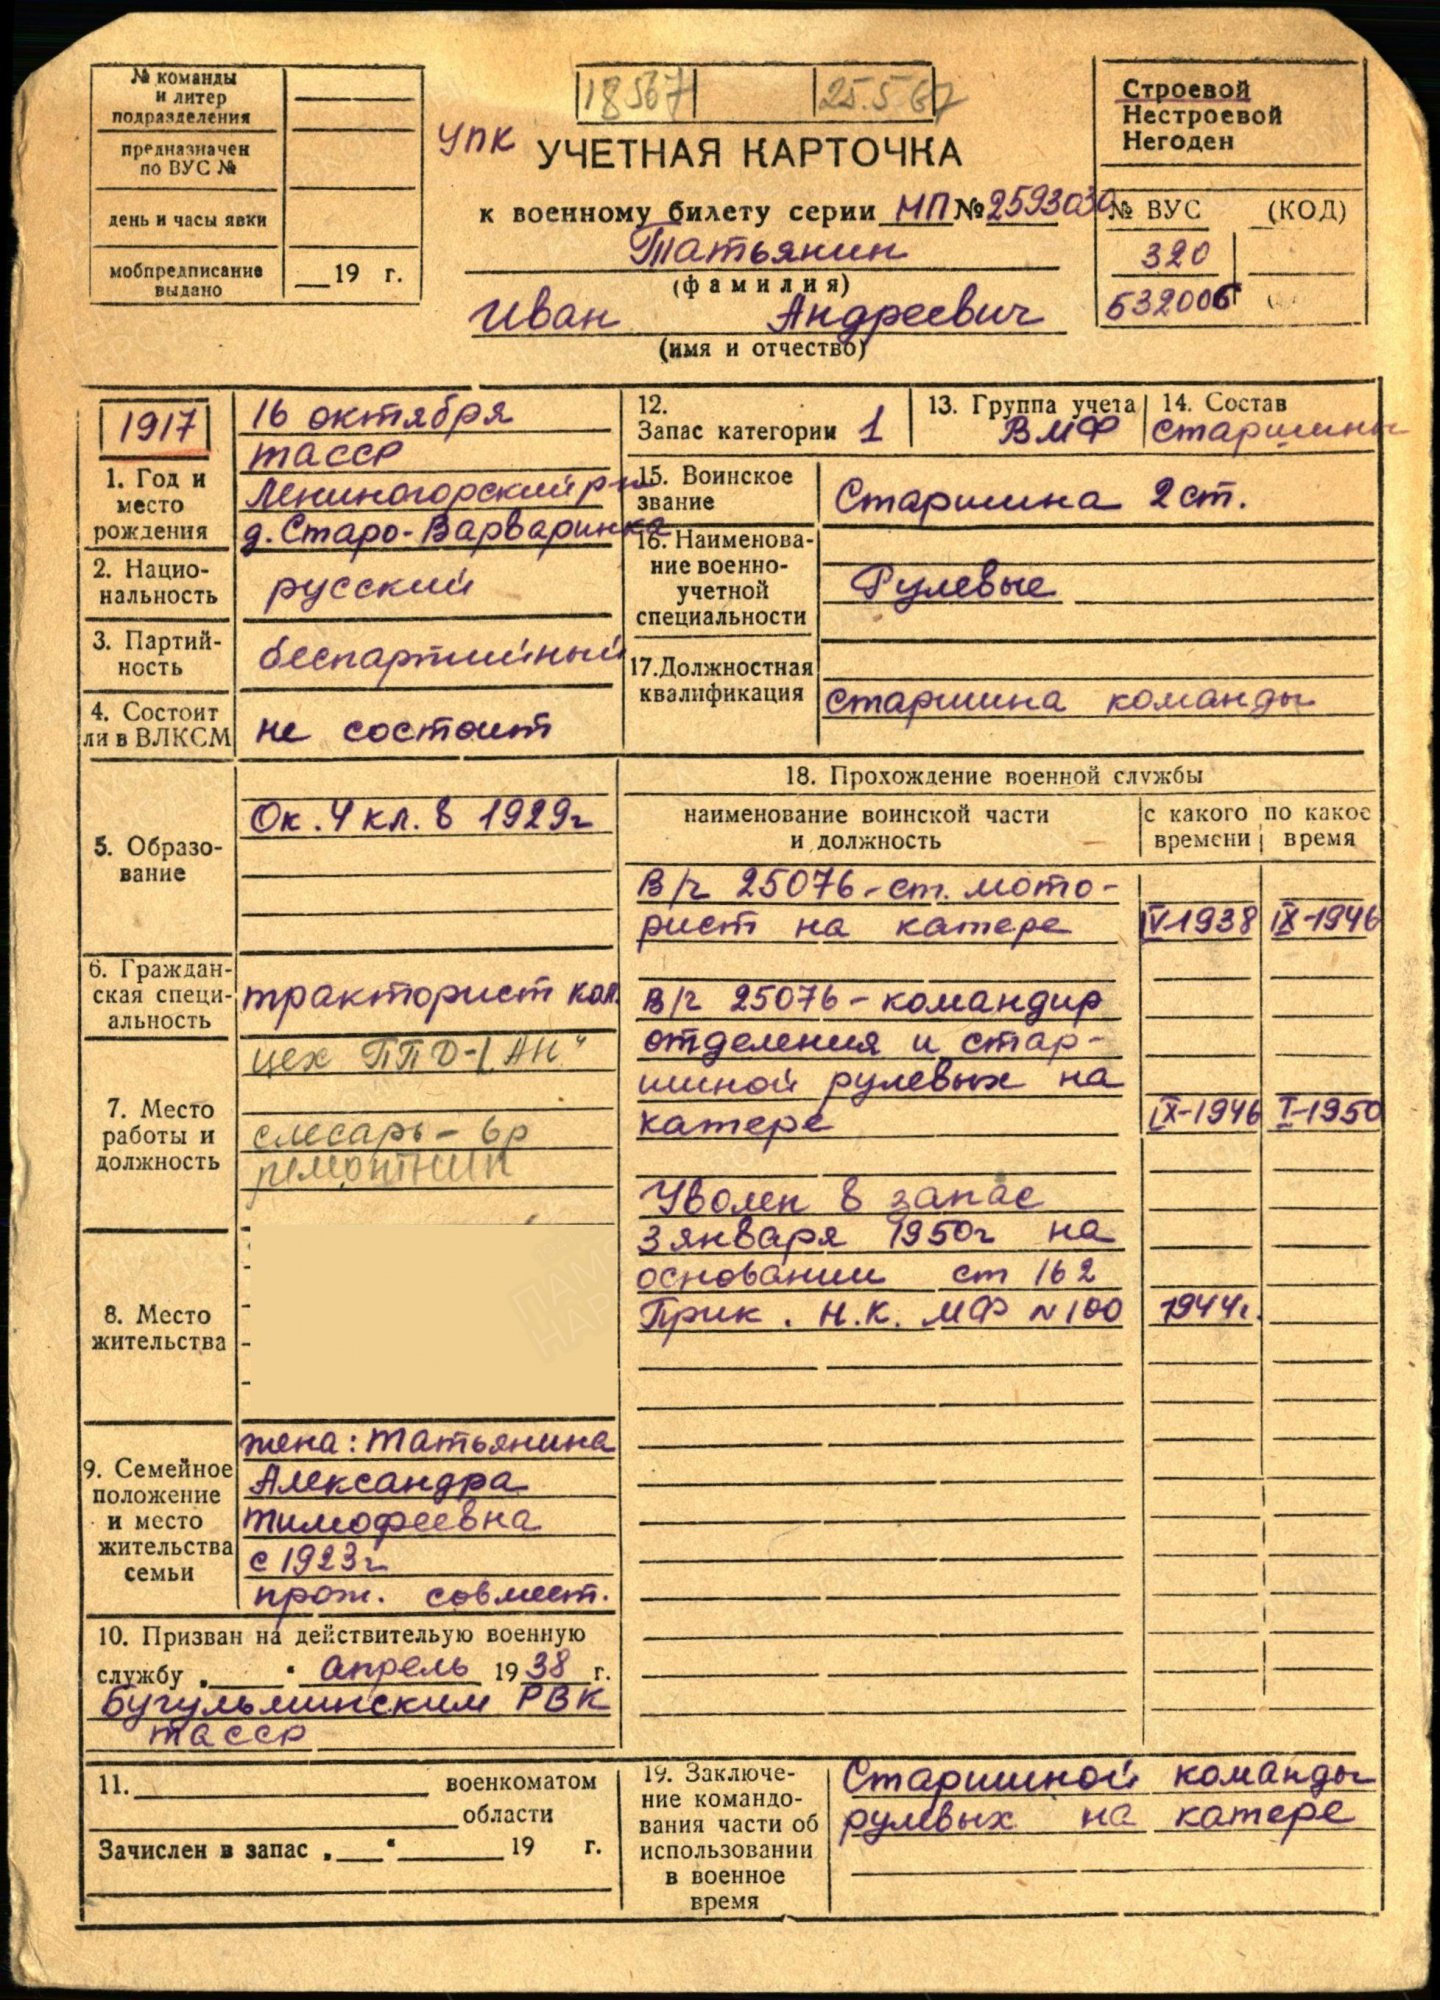 № команды
и литер
подразделения
предназначен
по ВУС №
день и часы явки
мобпредписание
выдано
19 г.
18567
25.5.67
УПК
УЧЕТНАЯ КАРТОЧКА
к военному билету серии МП № 2593030
Татьянин
(фамилия)
Иван Андреевич
(имя и отчество)
Строевой
Нестроевой
Негоден
№ ВУС (КОД)
320
632006
1917
1. Год и
место
рождения
16 октября
ТАССР
Лениногорский р-н
д. Старо-Варваринка
2. Нацио-
нальность
русский
3. Партий-
ность
беспартийный
4. Состоит
ли в ВЛКСМ
не состоит
5. Образо-
вание
Ок. 4 кл. в 1929г
6. Граждан-
ская специ-
альность
тракторист кол.
7. Место
работы и
должность
цех ППД-1 "АН"
слесарь - 6р
ремонтник
8. Место
жительства
9. Семейное
положение
и место
жительства
семьи
жена: Татьянина
Александра
Тимофеевна
с 1923г
прож. совмест.
10. Призван на действительую военную
службу „ “ апрель 1938 г.
Бугульминским РВК
ТАССР
11. военкоматом
области
Зачислен в запас „ “ 19 г.
12.
Запас категории 1
13. Группа учета
ВМФ
14. Состав
старшины
15. Воинское
звание
Старшина 2 ст.
16. Наименова-
ние военно-
учетной
специальности
Рулевые
17. Должностная
квалификация
старшина команды
18. Прохождение военной службы
наименование воинской части
и должность
с какого
времени
по какое
время
В/ч 25076 - ст. мото-
рист на катере IV-1938 IX-1946
В/ч 25076 - командир
отделения и стар-
шиной рулевых на
катере IX-1946 I-1950
Уволен в запас
3 января 1950г на
основании ст 162
Прик. Н.К. МФ N 100 1944г.
19. Заключе-
ние командо-
вания части об
использовании
в военное
время
Старшиной команды
рулевых на катере